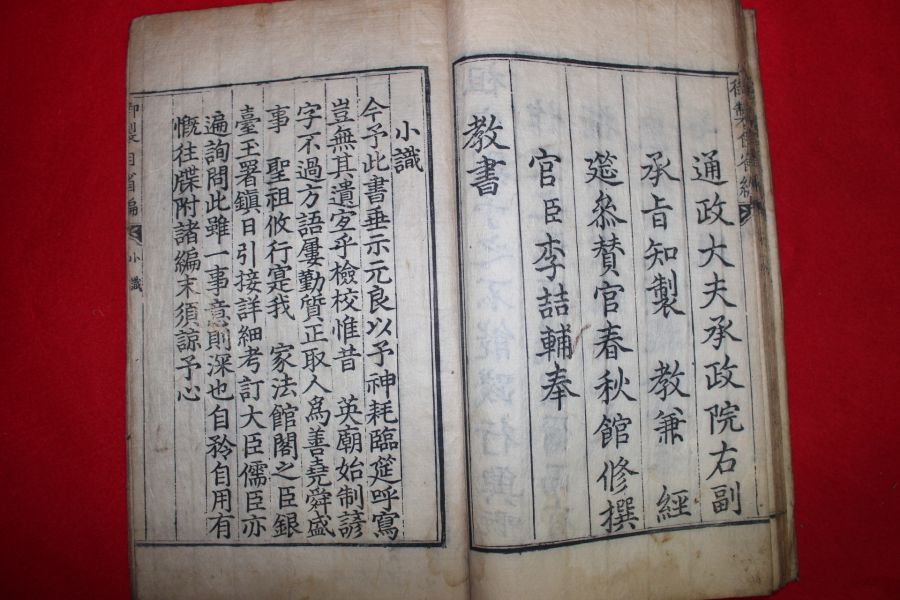 通政大夫承政院右副
承旨知製　教兼　經
筵參贊官春秋館修撰
官臣李喆輔奉
教書
小識
今予此書垂示元良以予神耗臨筵呼寫
豈無其遺㝎乎檢校惟昔　英廟始制諺
字不過方語屢勤質正取人爲善堯舜盛
事　聖祖攸行寔我　家法館閣之臣銀
臺玉署鎭日引接詳細考訂大臣儒臣亦
遍詢問此雖一事意則深也自矜自用有
慨往牒附諸編末須諒予心
御製自省編
小識